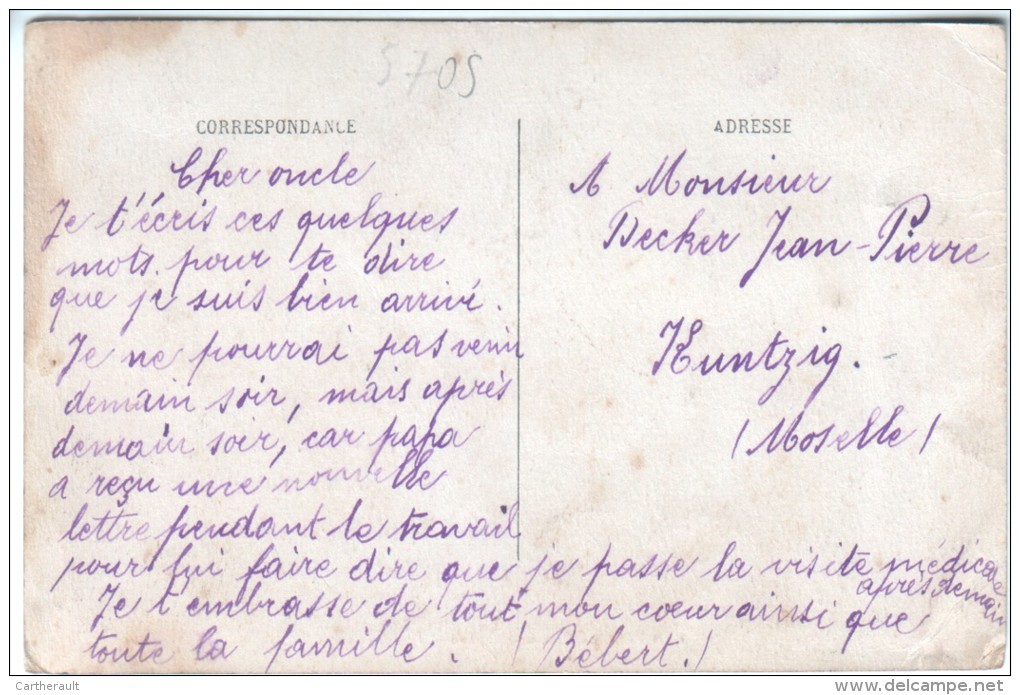 5705
CORRESPONDANCE
Cher oncle
Je t'écris ces quelques
mots pour te dire
que je suis bien arrivé.
Je ne pourrai pas venir
demain soir, mais après
demain soir, car papa
a reçu une nouvelle
lettre pendant le travail
pour lui faire dire que je passe la visite médicale
après demain
Je t'embrasse de tout mon coeur ainsi que
toute la famille. (Bébert.)
ADRESSE
A Monsieur
Decker Jean-Pierre
Kuntzig.
(Moselle)
Cartherault
www.delcampe.net